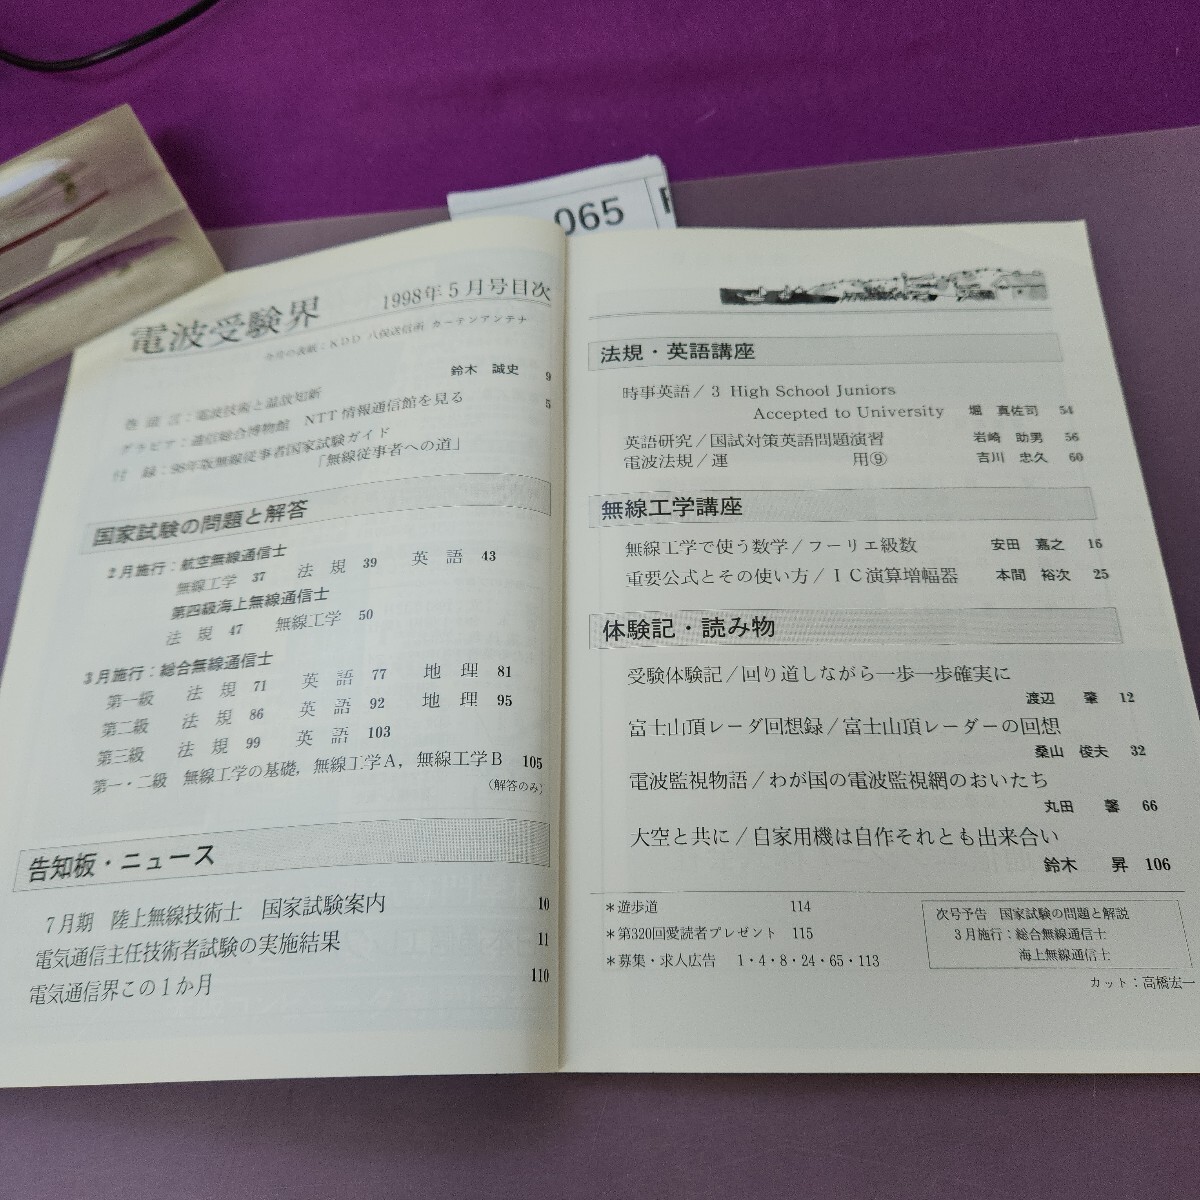 065
電波受験界
1998年5月号目次
今月の表紙：KDD 八俣送信所 カーテンアンテナ
巻頭言：電波技術と温故知新
鈴木 誠史 9
グラビア：逓信総合博物館 NTT情報通信館を見る 5
付 録：98年版無線従事者国家試験ガイド
「無線従事者への道」
国家試験の問題と解答
2月施行：航空無線通信士
無線工学 37 法 規 39 英 語 43
第四級海上無線通信士
法 規 47 無線工学 50
3月施行：総合無線通信士
第一級 法 規 71 英 語 77 地 理 81
第二級 法 規 86 英 語 92 地 理 95
第三級 法 規 99 英 語 103
第一・二級 無線工学の基礎，無線工学A，無線工学B 105
（解答のみ）
告知板・ニュース
7月期 陸上無線技術士 国家試験案内 10
電気通信主任技術者試験の実施結果 11
電気通信界この1か月 110
法規・英語講座
時事英語/3 High School Juniors
Accepted to University 堀 真佐司 54
英語研究/国試対策英語問題演習 岩崎 助男 56
電波法規/運 用⑨ 吉川 忠久 60
無線工学講座
無線工学で使う数学/フーリエ級数 安田 嘉之 16
重要公式とその使い方/IC演算増幅器 本間 裕次 25
体験記・読み物
受験体験記/回り道しながら一歩一歩確実に
渡辺 肇 12
富士山頂レーダ回想録/富士山頂レーダーの回想
桑山 俊夫 32
電波監視物語/わが国の電波監視網のおいたち
丸田 馨 66
大空と共に/自家用機は自作それとも出来合い
鈴木 昇 106
＊遊歩道 114
＊第320回愛読者プレゼント 115
＊募集・求人広告 1・4・8・24・65・113
次号予告 国家試験の問題と解説
3月施行：総合無線通信士
海上無線通信士
カット：高橋宏一